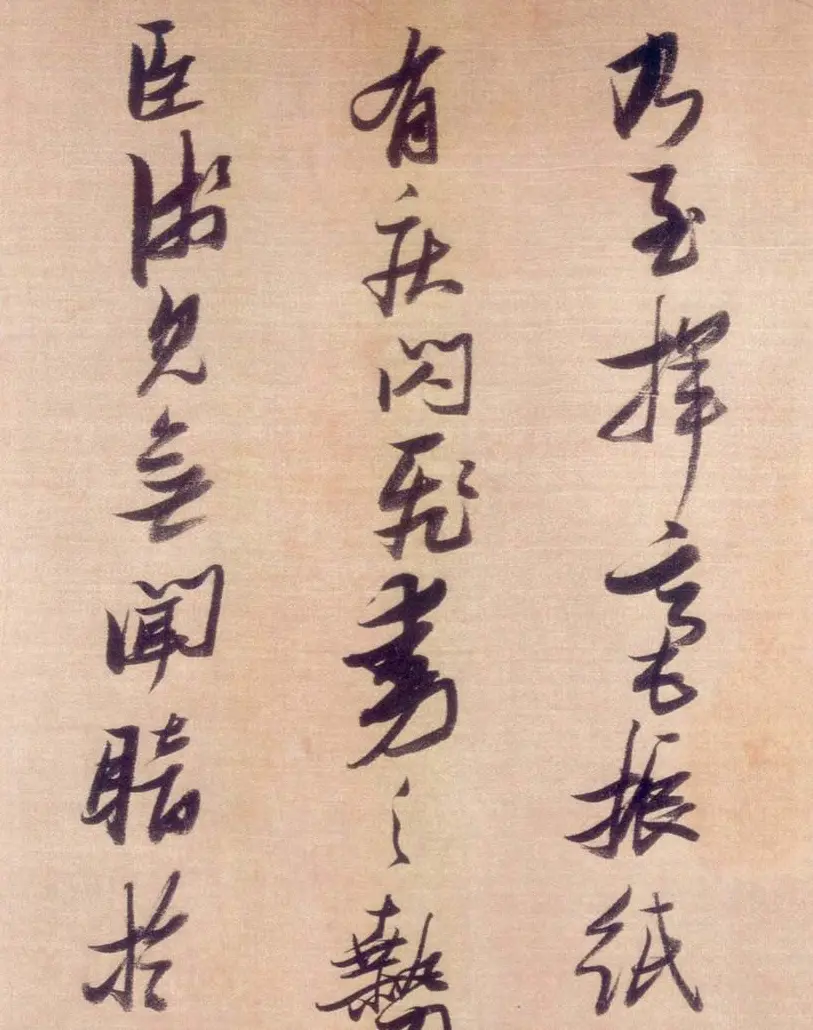 乃至揮毫振紙
有疾閃飛動之勢
臣淺見無聞暗於